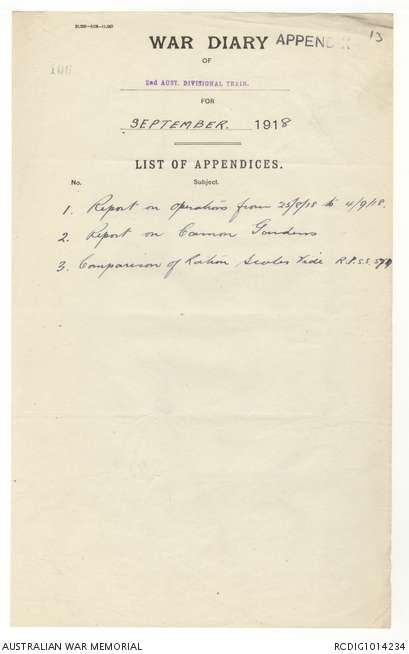 WAR DIARY APPENDIX 13
OF
2nd AUST. DIVISIONAL TRAIN.
FOR
SEPTEMBER. 1918
LIST OF APPENDICES.
No. Subject.
1. Report on operations from 25/8/18 to 4/9/18.
2. Report on Cannon Gardens
3. Comparison of Ration Scales Vide R.P.S.S.
AUSTRALIAN WAR MEMORIAL RCDIG1014234